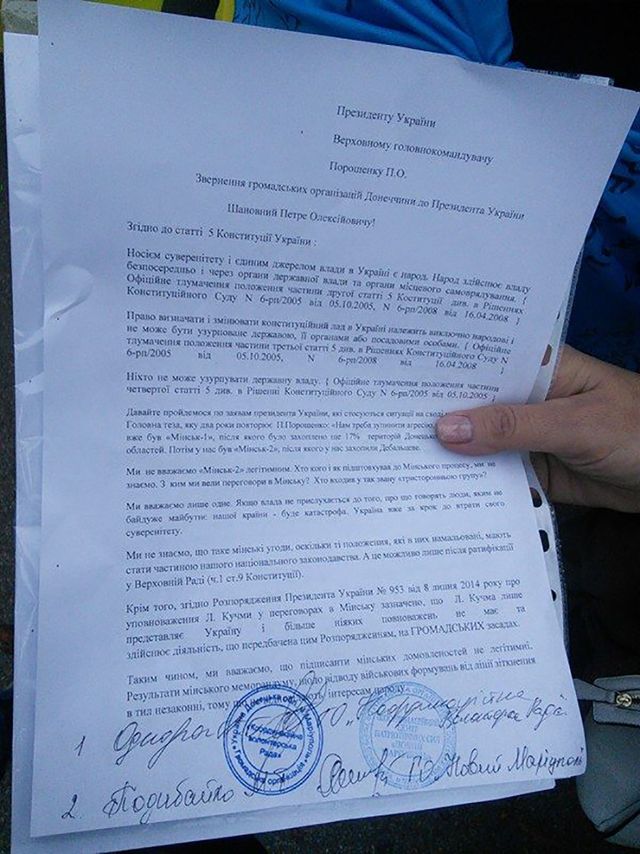 Президенту України
Верховному головнокомандувачу
Порошенку П.О.
Звернення громадських організацій Донеччини до Президента України
Шановний Петре Олексійовичу!
Згідно до статті 5 Конституції України :
Носієм суверенітету і єдиним джерелом влади в Україні є народ. Народ здійснює владу
безпосередньо і через органи державної влади та органи місцевого самоврядування. {
Офіційне тлумачення положення частини другої статті 5 Коституції див. в Рішеннях
Конституційного Суду N 6-рп/2005 від 05.10.2005, N 6-рп/2008 від 16.04.2008 }
Право визначати і змінювати конституційний лад в Україні належить виключно народові і
не може бути узурповане державою, її органами або посадовими особами. { Офіційне
тлумачення положення частини третьої статті 5 див. в Рішеннях Конституційного Суду N
6-рп/2005 від 05.10.2005, N 6-рп/2008 від 16.04.2008 }
Ніхто не може узурпувати державну владу. { Офіційне тлумачення положення частини
четвертої статті 5 див. в Рішенні Конституційного Суду N 6-рп/2005 від 05.10.2005 }
Давайте пройдемося по заявам президента України, які стосуються ситуації на сході
Головна теза, яку два роки повторює П.Порошенко: «Нам треба зупинити агресію,
вже був «Мінськ-1», після якого було захоплено ще 17% територій
областей. Потім у нас був «Мінськ-2», після якого у нас захопили Дебальцеве.
Ми не вважаємо «Мінськ-2» легітимним. Хто кого і як підштовхував до Мінського процесу, ми не
знаємо. З ким ми вели переговори в Мінську? Хто входив у так звану «тристоронньою групу»?
Ми вважаємо лише одне. Якщо влада не прислухається до того, про що говорять люди, яким не
байдуже майбутнє нашої країни - буде катастрофа. Україна вже за крок до втрати свого
суверенітету.
Ми не знаємо, що таке мінські угоди, оскільки ті положення, які в них намальовані, мають
стати частиною нашого національного законодавства. А це можливо лише після ратифікації
у Верховній Раді (ч.1 ст.9 Конституції).
Крім того, згідно Розпорядження Президента України № 953 від 8 липня 2014 року про
уповноваження Л. Кучми у переговорах в Мінську зазначено, що Л. Кучма лише
представляє Україну і більше ніяких повноважень не має та
здійснює діяльність, що передбачена цим Розпорядженням, на ГРОМАДСЬКИХ засадах.
Таким чином, ми вважаємо, що підписанти мінських домовленостей не легітимні.
Результати мінського меморандуму, щодо відводу військових формувань від лінії зіткнення
в тил незаконні, тому інтересам народу.
1 ГО
Рада"
2. Подибайло ГО "Новий Маріуполь"